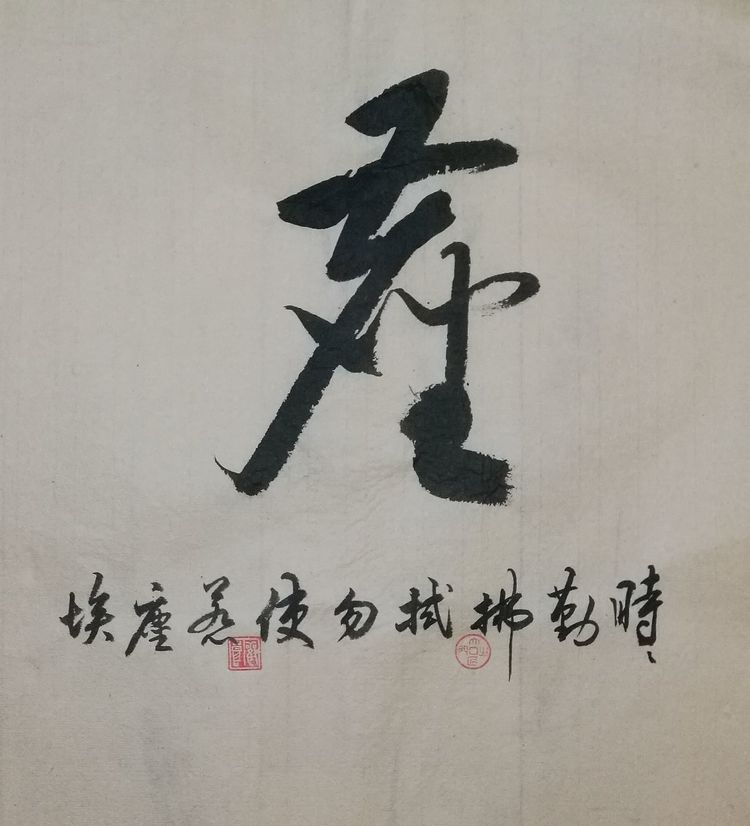 塵
時〻勤拂拭勿使惹塵埃